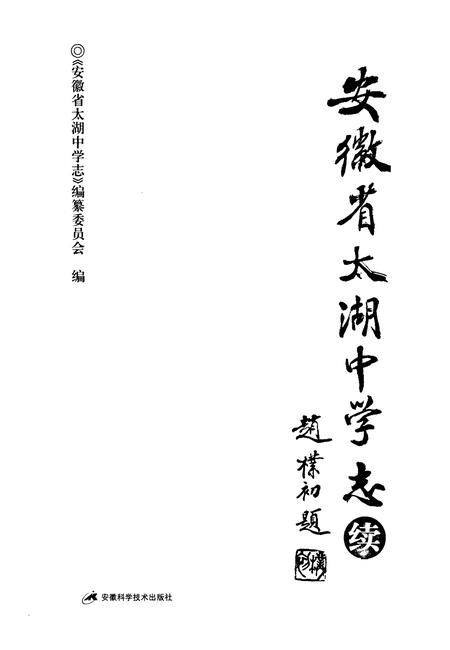 安徽省太湖中学志续
趙樸初題
◎《安徽省太湖中学志》编纂委员会 编
安徽科学技术出版社